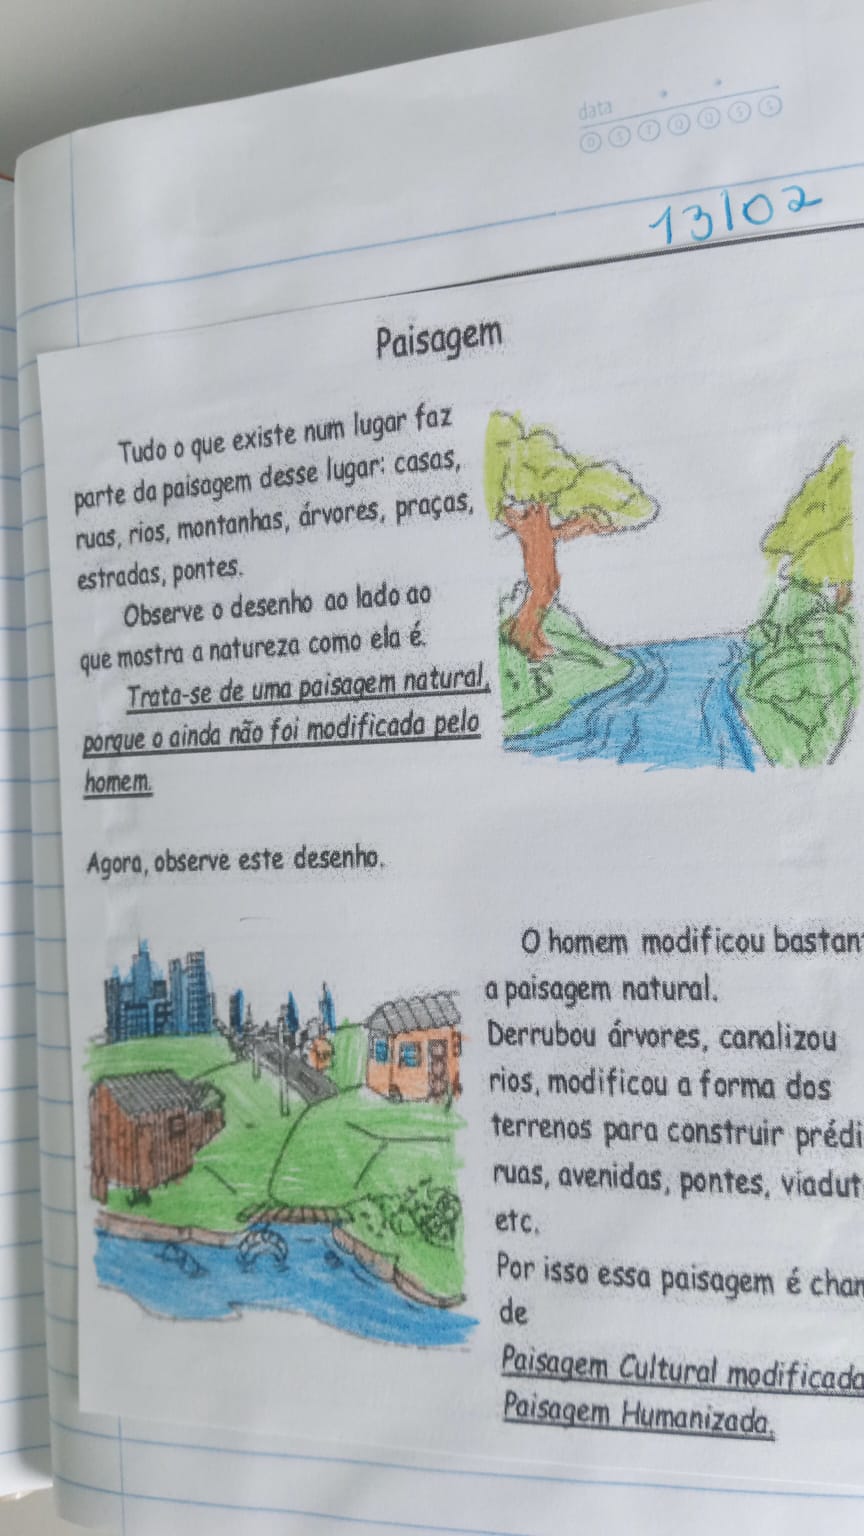 data
D S T Q Q S S
13/02
Paisagem
Tudo o que existe num lugar faz
parte da paisagem desse lugar: casas,
ruas, rios, montanhas, árvores, praças,
estradas, pontes.
Observe o desenho ao lado ao
que mostra a natureza como ela é.
Trata-se de uma paisagem natural,
porque o ainda não foi modificada pelo
homem.
Agora, observe este desenho.
O homem modificou bastan
a paisagem natural.
Derrubou árvores, canalizou
rios, modificou a forma dos
terrenos para construir prédi
ruas, avenidas, pontes, viadut
etc.
Por isso essa paisagem é cham
de
Paisagem Cultural modificada
Paisagem Humanizada.